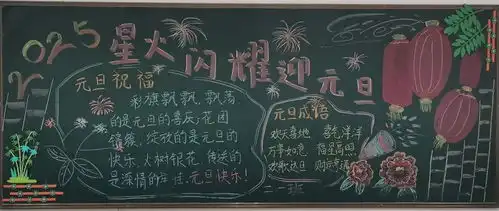 2025
星火闪耀迎元旦
元旦祝福
彩旗飘飘,飘荡
的是元旦的喜庆;花团
锦簇,绽放的是元旦的
快乐;火树银花,传送的
是深情的 佳,元旦快乐!
元旦成语
欢天喜地 喜气洋洋
万事如意 福星高照
欢歌
二一班